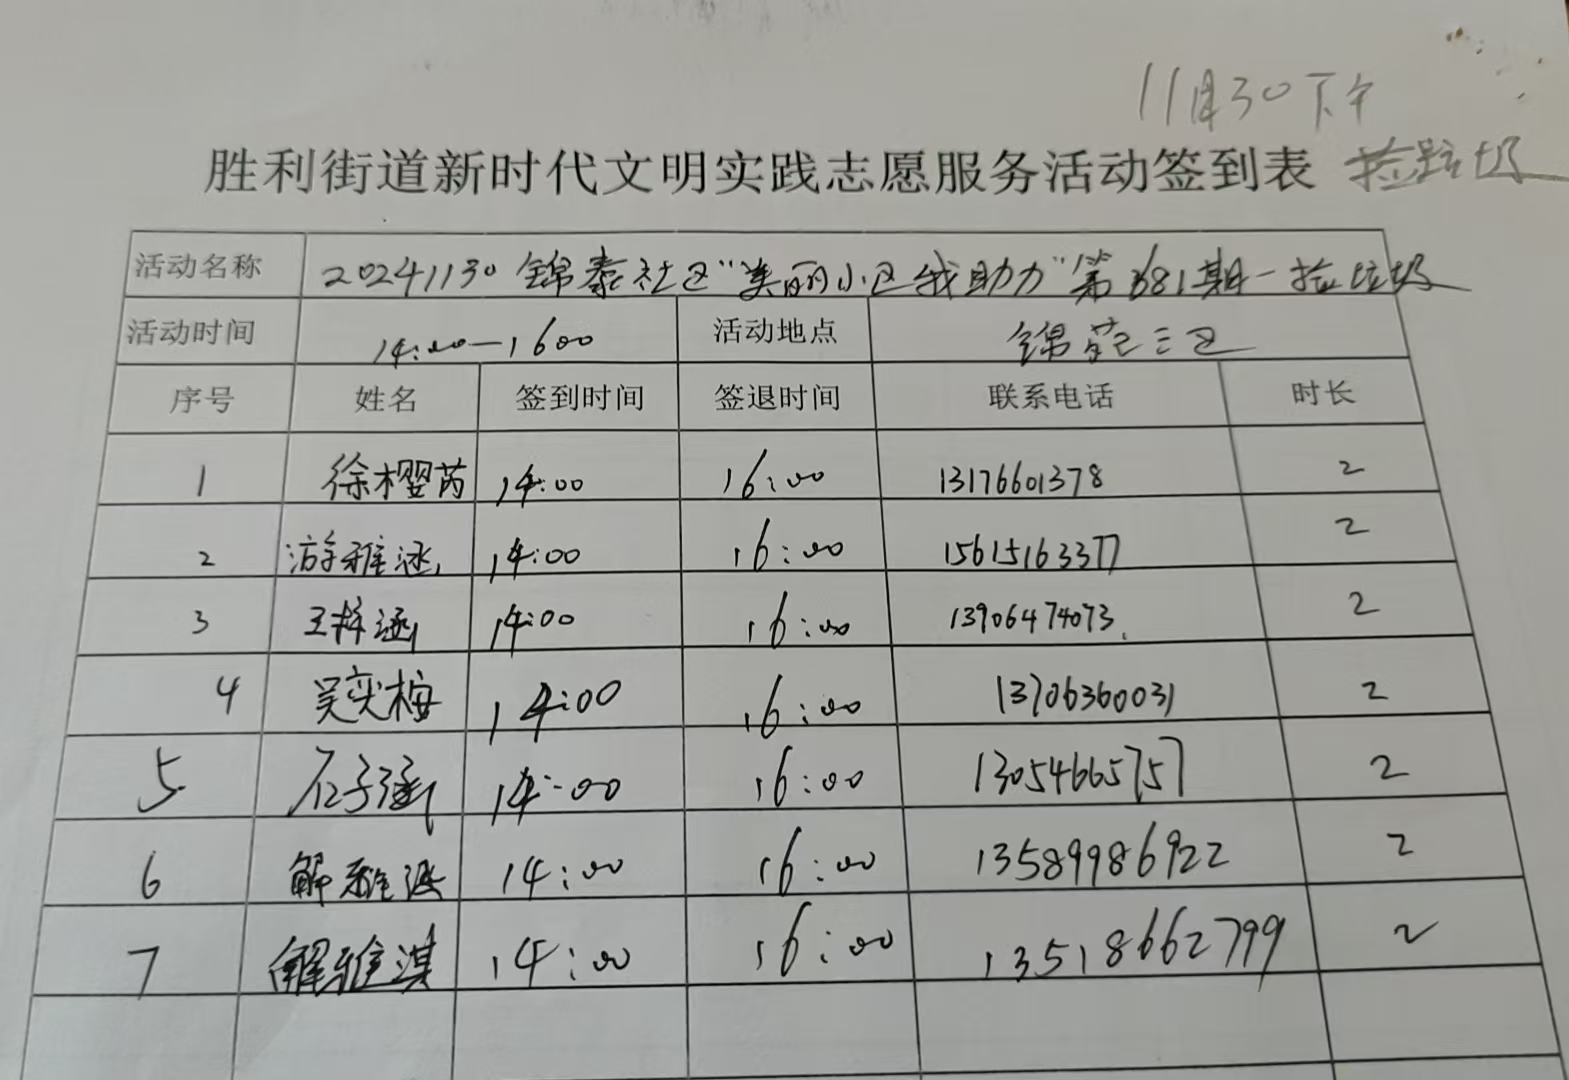 11月30下午
胜利街道新时代文明实践志愿服务活动签到表 捡垃圾
活动名称 20241130 锦泰社区“美丽小区我助力”第681期-捡垃圾
活动时间 14:00—1600 活动地点 锦苑三区
序号 姓名 签到时间 签退时间 联系电话 时长
1 徐樱芮 14:00 16:00 13176601378 2
2 游雅涵 14:00 16:00 15615163377 2
3 王梓涵 14:00 16:00 13906474073 2
4 吴奕梅 14:00 16:00 13706360031 2
5 石子涵 14:00 16:00 13054665757 2
6 解雅涵 14:00 16:00 13589986922 2
7 解雅淇 14:00 16:00 13518662799 2